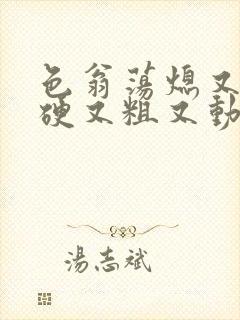 色翁荡熄又
硬又粗又動
湯志斌